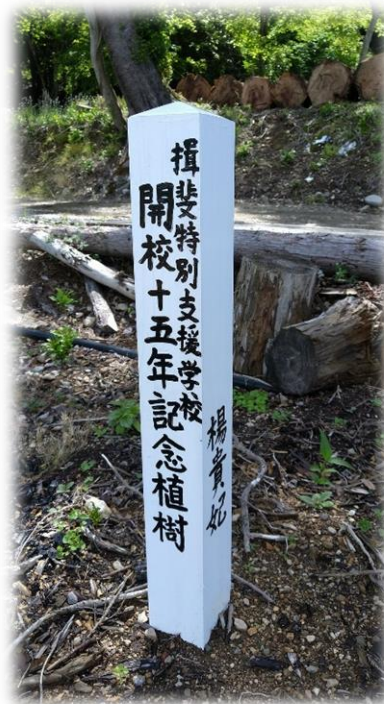 揖斐特別支援学校
開校十五年記念植樹
楊貴妃